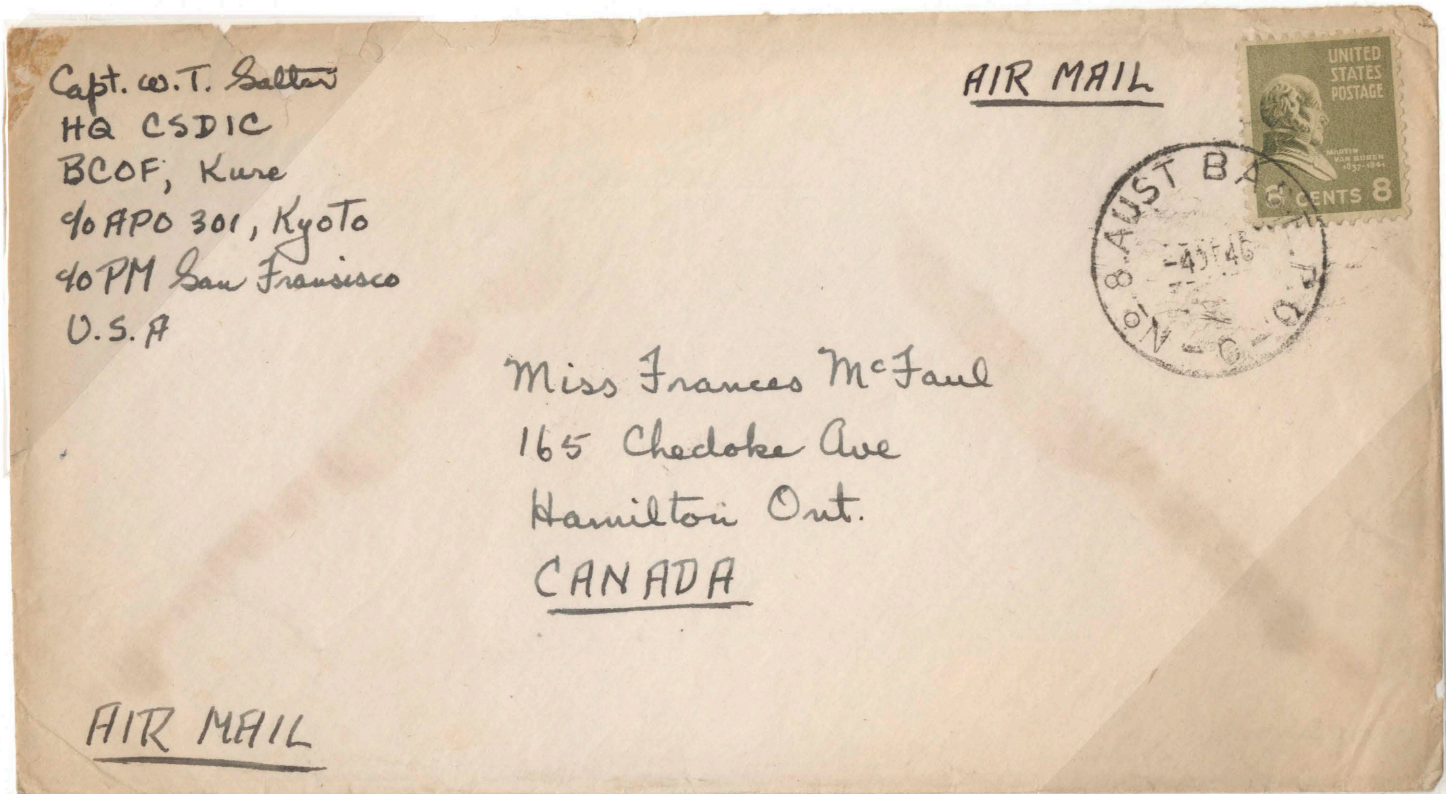 Capt. W.T. Salter
HQ CSDIC
BCOF, Kure
c/o APO 301, Kyoto
c/o PM San Fransisco
U.S.A
AIR MAIL
UNITED
STATES
POSTAGE
MARTIN
VAN BUREN
1837-1841
8 CENTS 8
No. 8. AUST BASE. P.O
46
Miss Frances McFaul
165 Chedoke Ave
Hamilton Ont.
CANADA
AIR MAIL